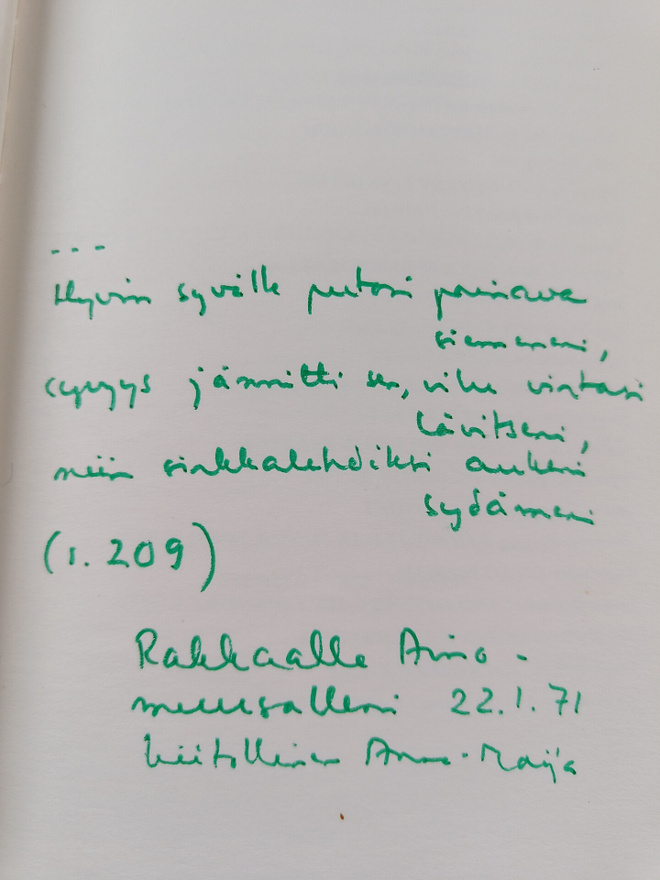 ...
Hyvin syvälle putosi painava
siemeneni,
syvyys jännitti sen, vilu virtasi
lävitseni,
niin sirkkalehdiksi aukeni
sydämeni
(s. 209)
Rakkaalle Aino-
muusalleni 22.1.71
kiitollinen Anna-Maija